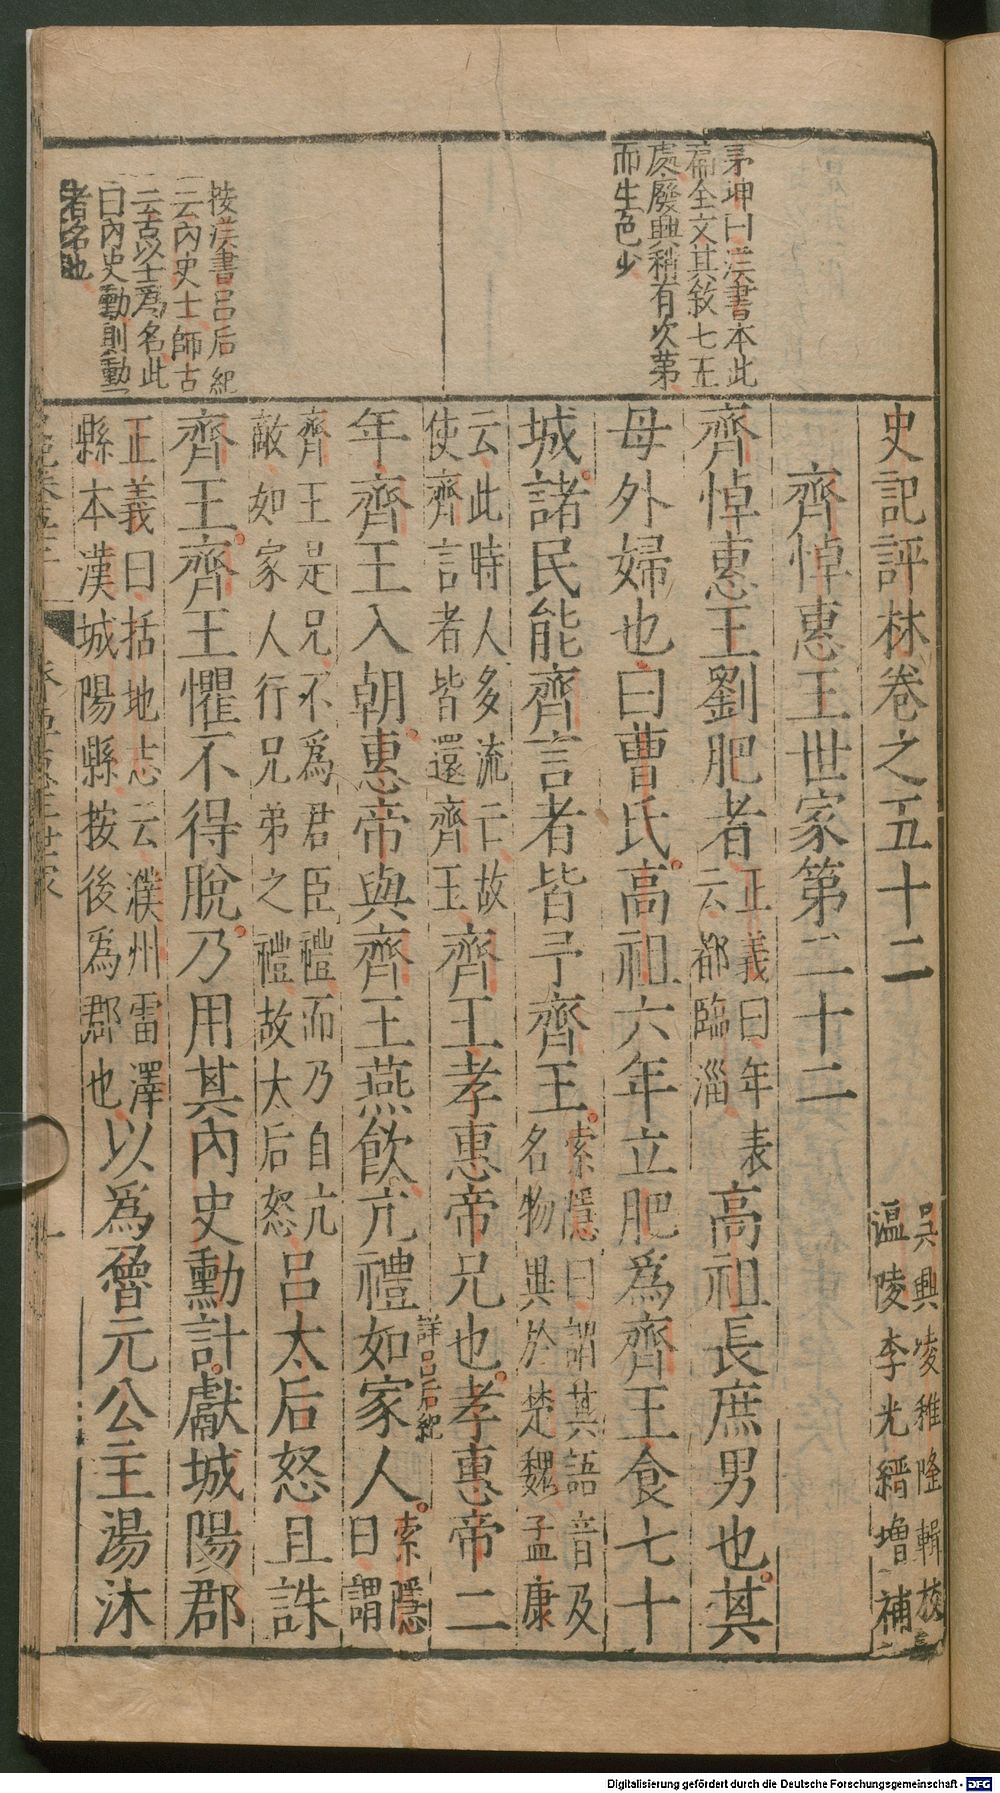 史記評林卷之五十二
吳興凌稚隆輯校
溫陵李光縉增補
齊悼惠王世家第二十二
齊悼惠王劉肥者
正義曰年表
云都臨淄
高祖長庶男也其
母外婦也曰曹氏高祖六年立肥爲齊王食七十
城諸民能齊言者皆予齊王
索隱曰謂其語音及
名物異於楚魏孟康
云此時人多流亡故
使齊言者皆還齊王
齊王孝惠帝兄也孝惠帝二
年齊王入朝惠帝與齊王燕飲亢禮如家人
詳呂后紀
索隱
曰謂
齊王是兄不爲君臣禮而乃自亢
敵如家人行兄弟之禮故太后怒
呂太后怒且誅
齊王齊王懼不得脫乃用其內史勳計獻城陽郡
正義曰括地志云濮州雷澤
縣本漢城陽縣按後爲郡也
以爲魯元公主湯沐
茅坤曰漢書本此
篇全文其敘七王
處廢興稍有次第
而生色少
按漢書呂后紀
云內史士師古
云古以士爲名此
曰內史勳則勳
者名也
一
Digitalisierung gefördert durch die Deutsche Forschungsgemeinschaft - DFG